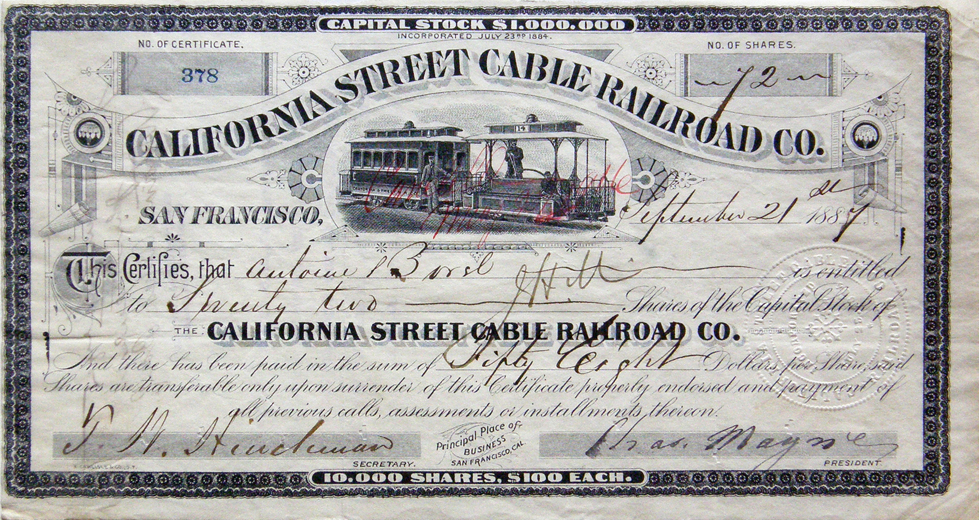 CAPITAL STOCK $1.000.000
INCORPORATED JULY 23RD 1884.
NO. OF CERTIFICATE.
NO. OF SHARES.
378
72
CALIFORNIA STREET CABLE RAILROAD CO.
14
SAN FRANCISCO,
September 21st 1887
This Certifies, that Antoine Borel is entitled
to Seventy two Shares of the Capital Stock of
THE CALIFORNIA STREET CABLE RAILROAD CO.
And there has been paid in the sum of Fifty Eight Dollars per Share, said
Shares are transferable only upon surrender of this Certificate properly endorsed and payment of
all previous calls, assessments or installments thereon.
Principal Place of
BUSINESS
SAN FRANCISCO, CAL
SECRETARY.
Chas. Mayne
PRESIDENT
10,000 SHARES, $100 EACH.